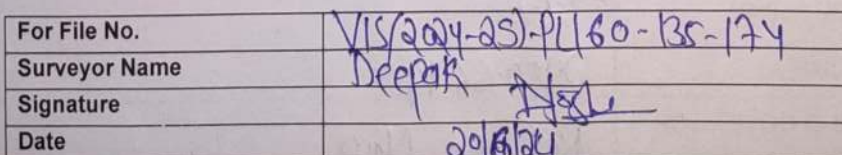 For File No. VIS(2024-25)-PL160-135-174
Surveyor Name Deepak
Signature
Date 20/6/24